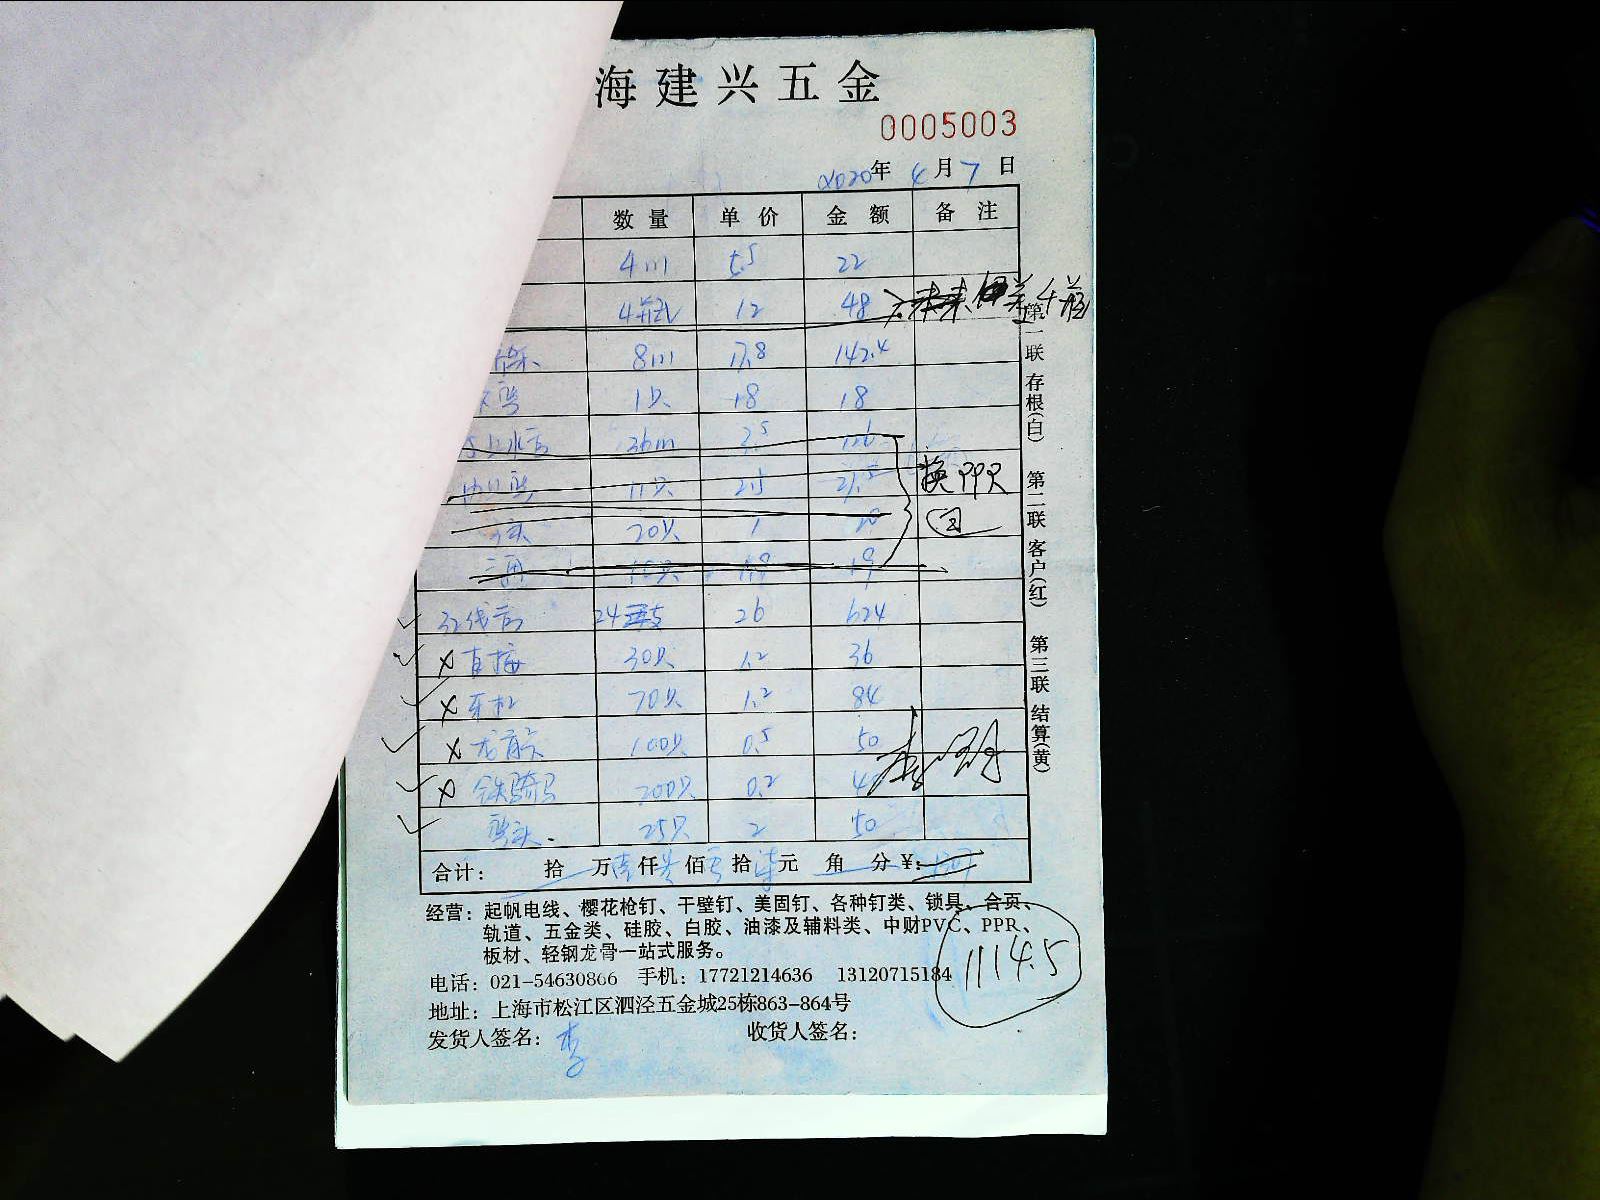 海建兴五金
0005003
2020年 4月7日
数量 单价 金额 备注
4m 5.5 22
4瓶 12 48
8m 17.8 142.4
弯 1只 18 18
36m 3.5 126
11只 2.5 27.5 换PPR
20只 1 20 回
三角 10只 1.9 19
32线管 24支 26 624
✓ × 直接 30只 1.2 36
✓ × 牙杠 70只 1.2 84
✓ × 100只 0.5 50
✓ × 铁骑马 200只 0.2
✓ 弯头 25只 2 50
合计: 拾 万 仟 佰 拾 元 角 分 ¥:
经营: 起帆电线、樱花枪钉、干壁钉、美固钉、各种钉类、锁具、合页、
轨道、五金类、硅胶、白胶、油漆及辅料类、中财PVC、PPR、
板材、轻钢龙骨一站式服务。
1114.5
电话: 021-54630866 手机: 17721214636 13120715184
地址: 上海市松江区泗泾五金城25栋863-864号
发货人签名: 李 收货人签名:
第一联 存根(白) 第二联 客户(红) 第三联 结算(黄)